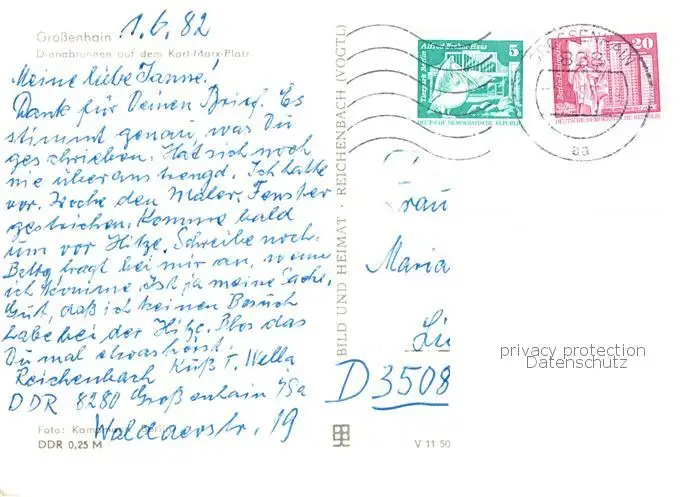 1.6.82
Großenhain
Dianabrunnen auf dem Karl-Marx-Platz
Meine liebe Janne!
Dank für Deinen Brief. Es
stimmt genau, was Du
geschrieben. Hat sich noch
nie überanstrengd. Ich hatte
vor. Woche den Maler, Fenster
gestrichen. Komme bald
um vor Hitze. Schreibe noch.
fragt bei mir an, wann
ich komme. Ist ja meine Sache.
Gut, daß ich keinen Besuch
habe bei der Hitze. Blos das
Du mal etwas hörst.
Kuß T. Wella
Reichenbach
DDR 8280 Großenhain
19
Foto: Berlin
DDR 0,25 M
BILD UND HEIMAT · REICHENBACH (VOGTL)
V 11 50
Alfred-Brehm-Haus
Tierpark Berlin
5
DEUTSCHE DEMOKRATISCHE REPUBLIK
20
DEUTSCHE DEMOKRATISCHE REPUBLIK
GROSSENHAIN
aa
Frau
Maria
D 3508
privacy protection
Datenschutz